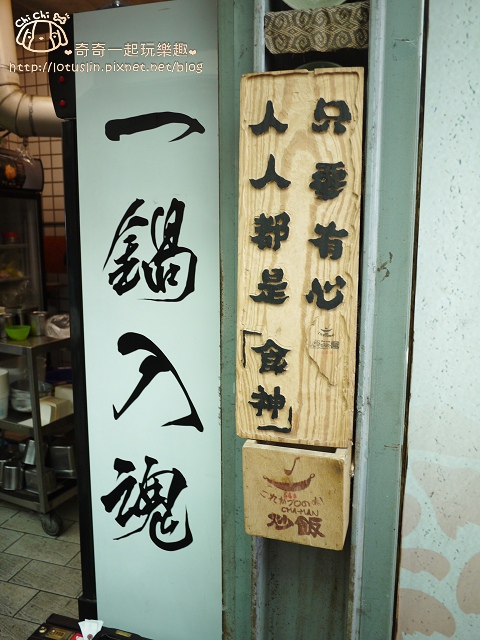 Chi Chi Go
❤奇奇一起玩樂趣❤
http://lotuslin.pixnet.net/blog
一鍋入魂
只要有心
人人都是「食神」
CHA-HAN
炒飯